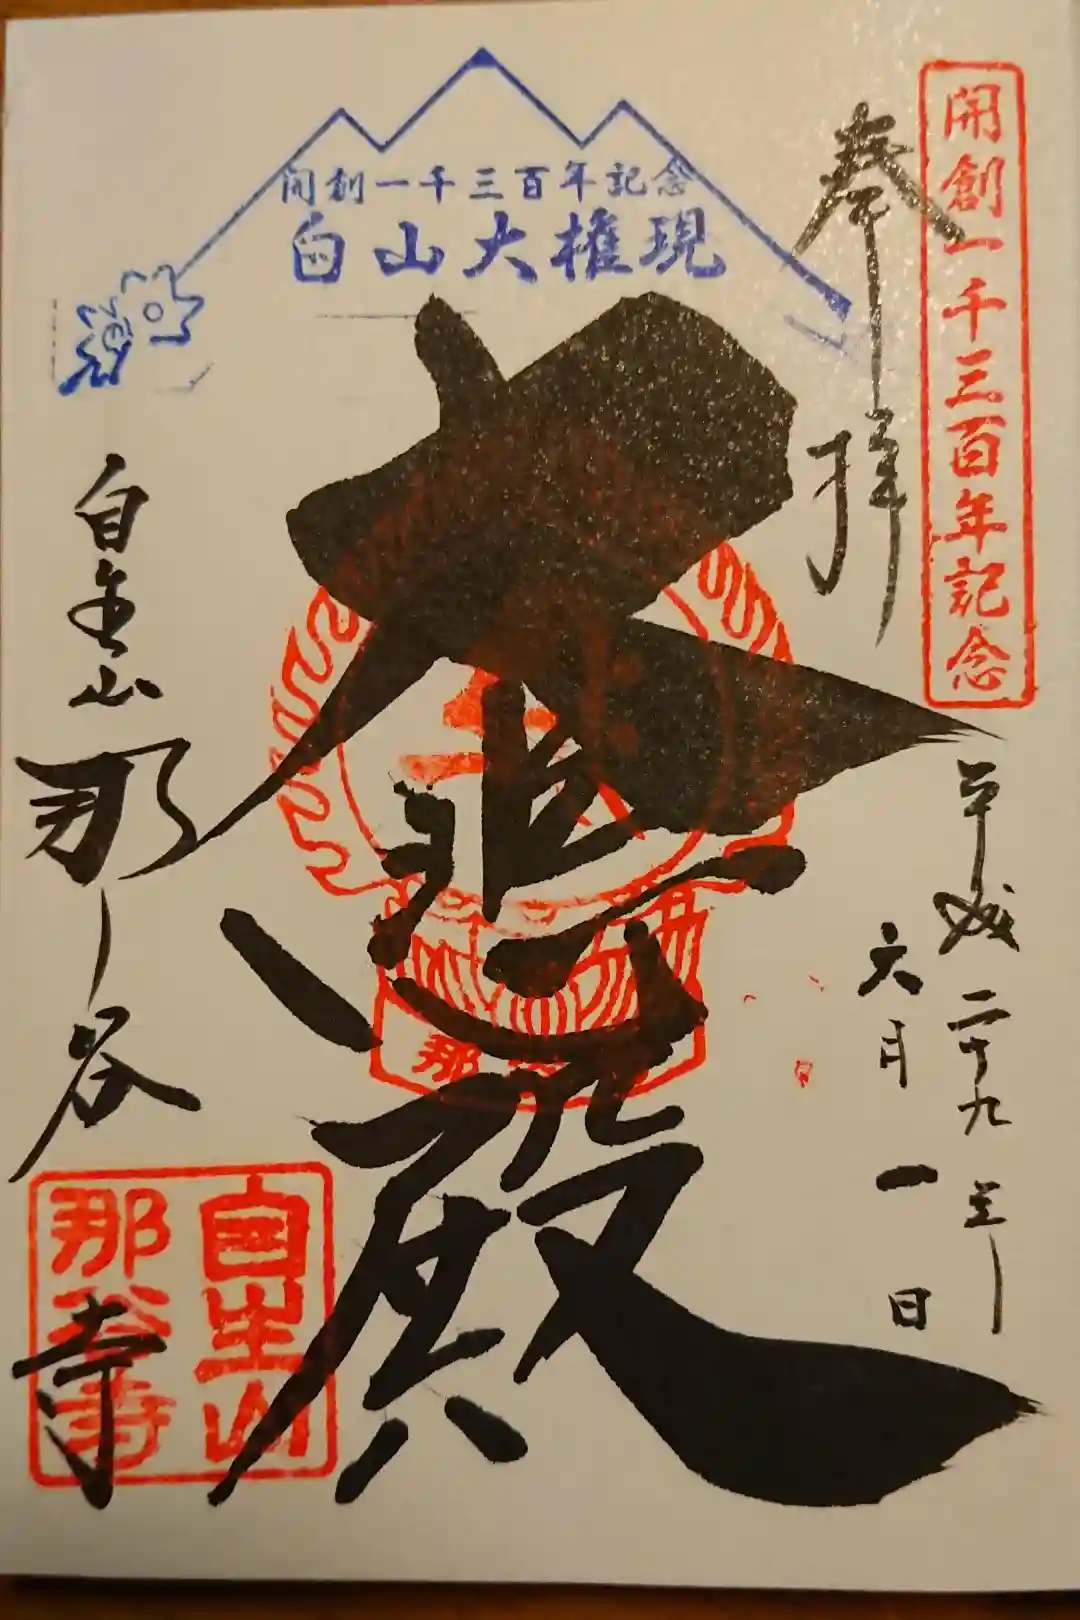 開創一千三百年記念
奉拝
平成二十九年
六月一日
開創一千三百年記念
白山大権現
大悲殿
自生山
那谷寺
自生山
那谷寺